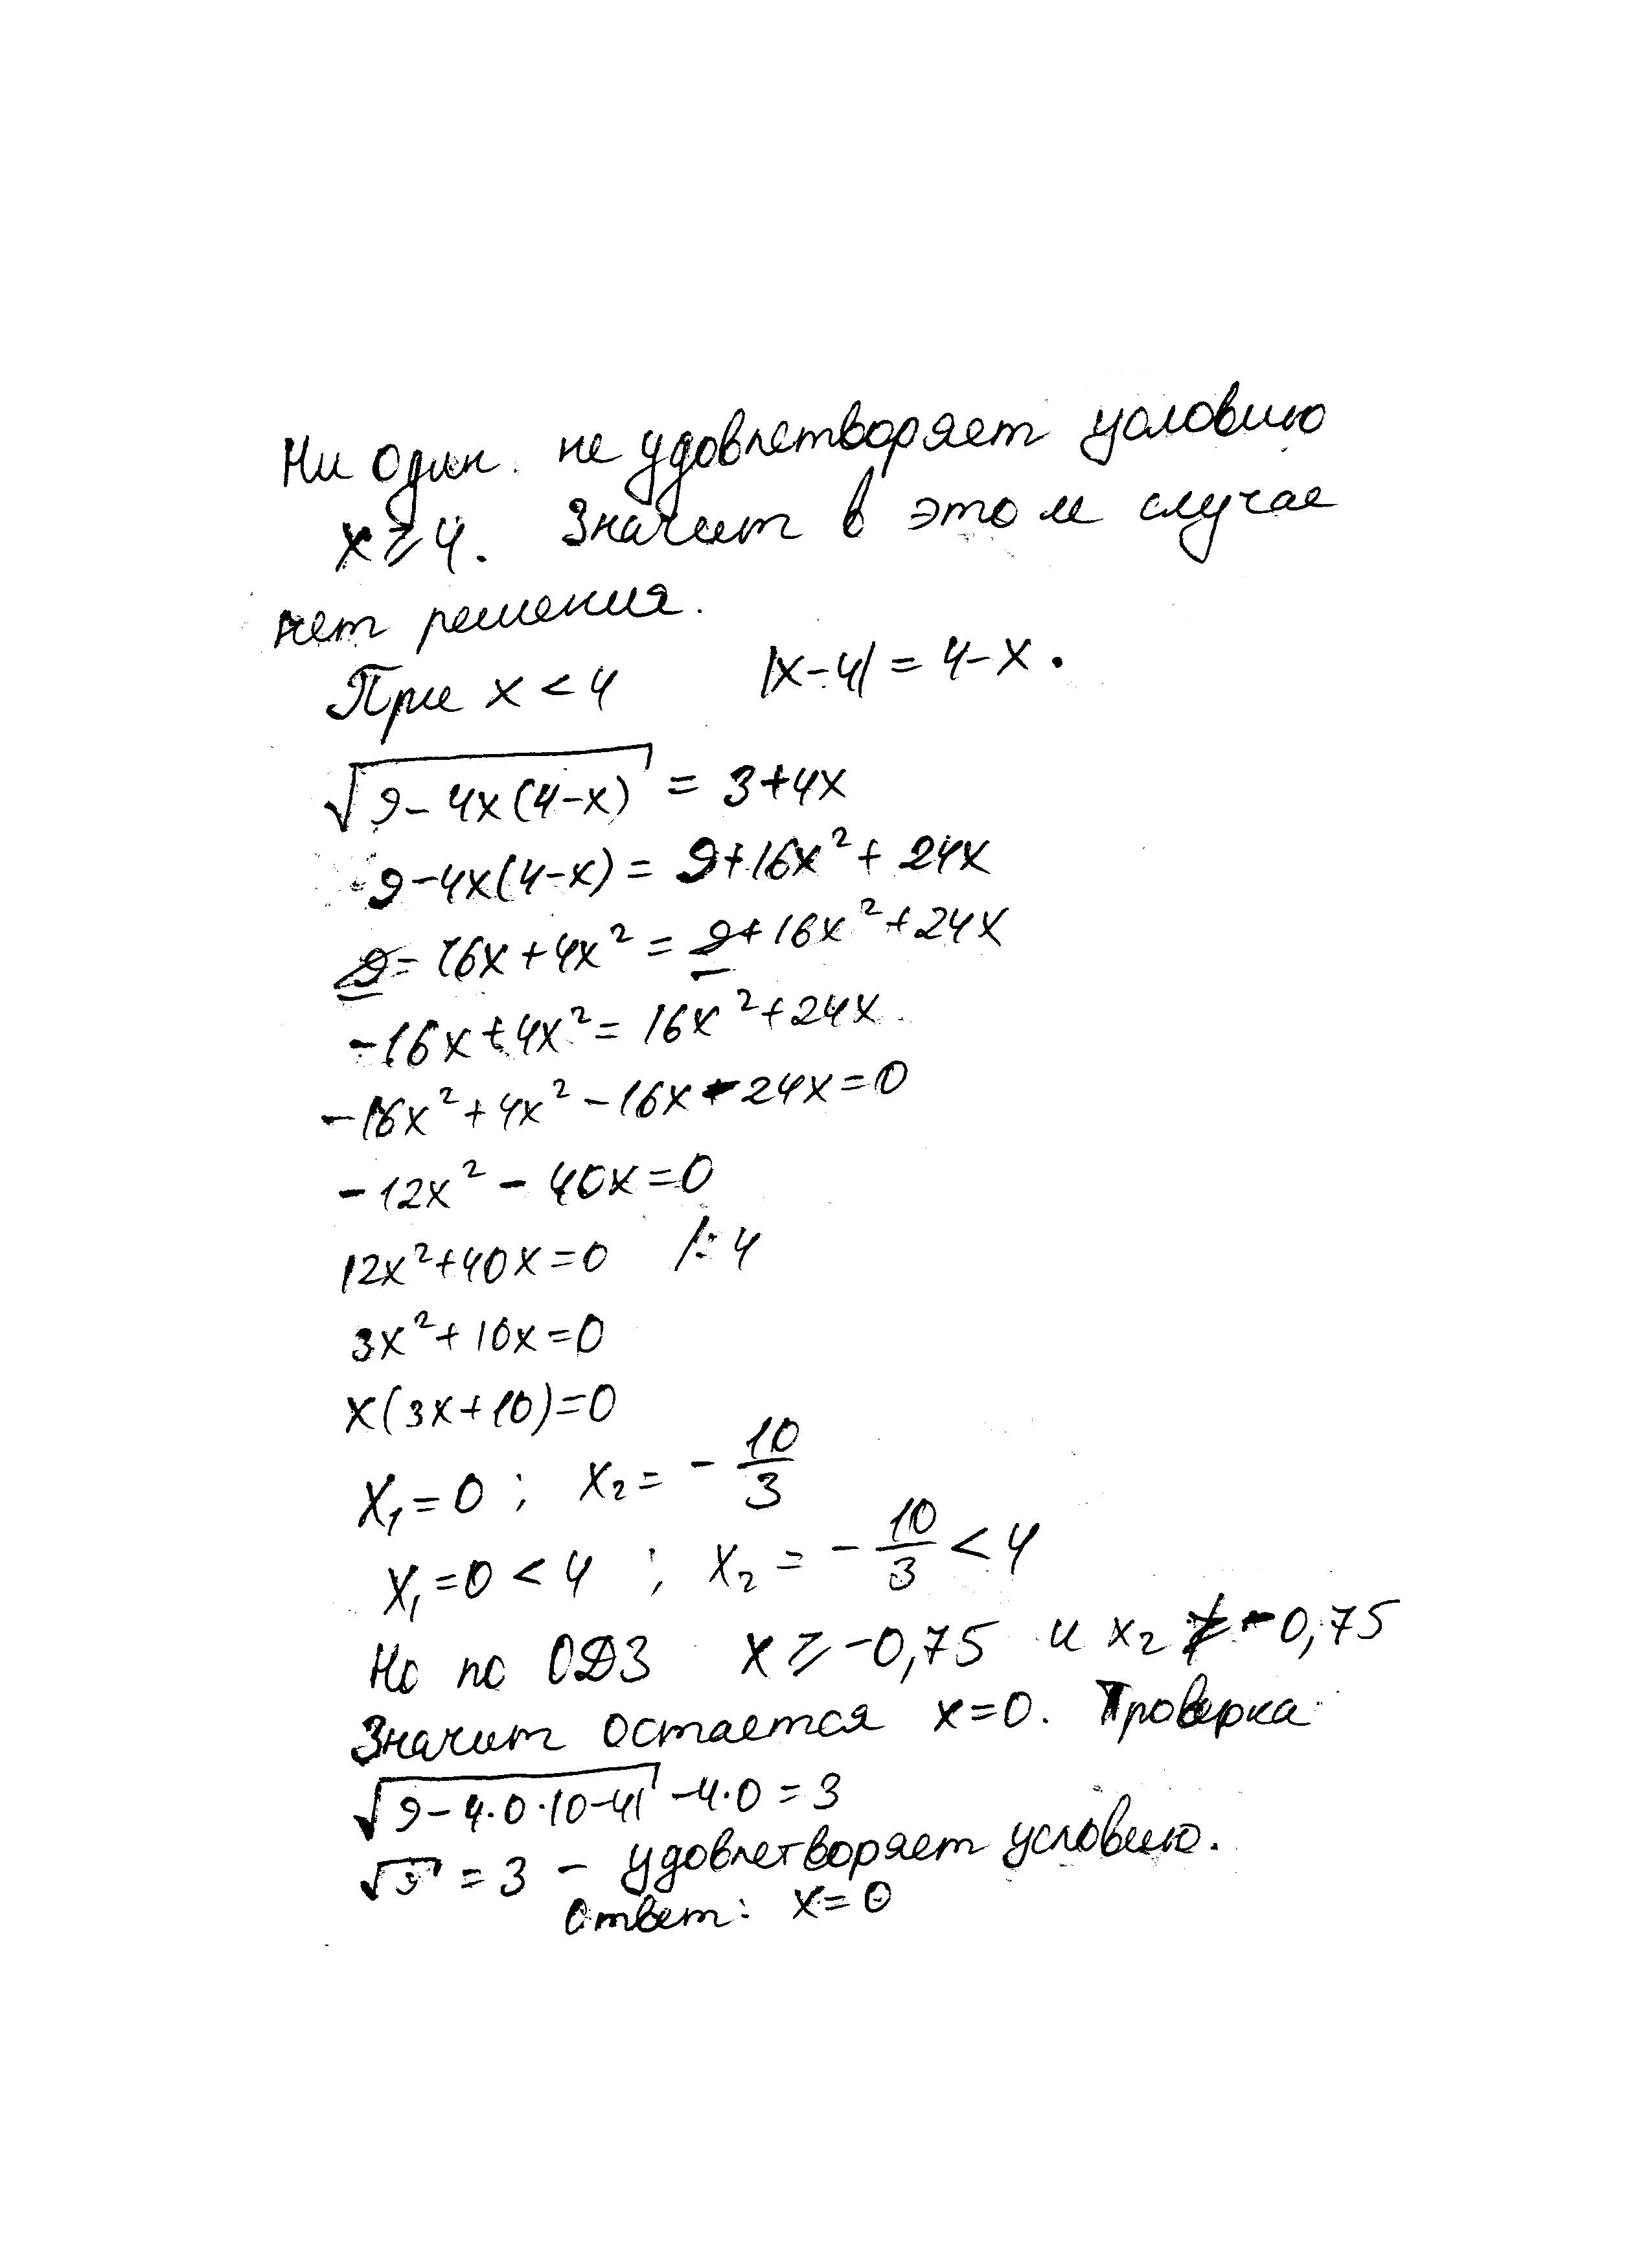 Ни один не удовлетворяет условию
x ⩾ 4. Значит в этом случае
нет решения.
При x < 4 |x-4| = 4-x.
√(9-4x(4-x)) = 3+4x
9-4x(4-x) = 9+16x²+24x
9-16x+4x² = 9+16x²+24x
-16x+4x² = 16x²+24x
-16x²+4x²-16x-24x=0
-12x² - 40x=0
12x²+40x=0 /:4
3x²+10x=0
x(3x+10)=0
x₁=0 ; x₂= -10/3
x₁=0 < 4 ; x₂ = -10/3 < 4
Но по ОДЗ x ⩾ -0,75 и x₂ ⩾̸ -0,75
Значит остается x=0. Проверка
√(9-4·0·|0-4|) -4·0 = 3
√9 = 3 - удовлетворяет условию.
Ответ: x=0